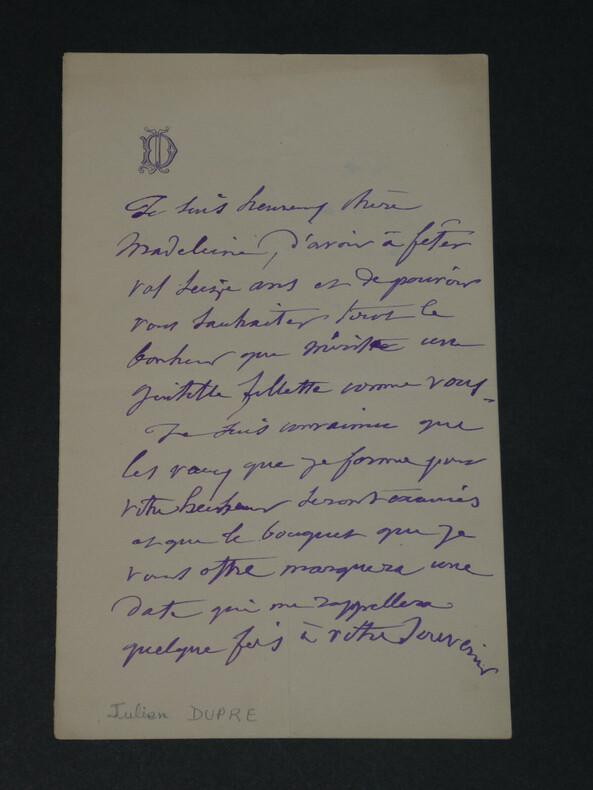 JD
Je suis heureux chère
Madeleine, d'avoir à fêter
vos seize ans et de pouvoir
vous souhaiter tout le
bonheur que mérite une
gentille fillette comme vous.
Je suis convaincue que
les vœux que je forme pour
votre bonheur seront exaucés
et que le bouquet que je
vous offre marquera une
date qui me rappellera
quelque fois à votre souvenir
Julien DUPRE